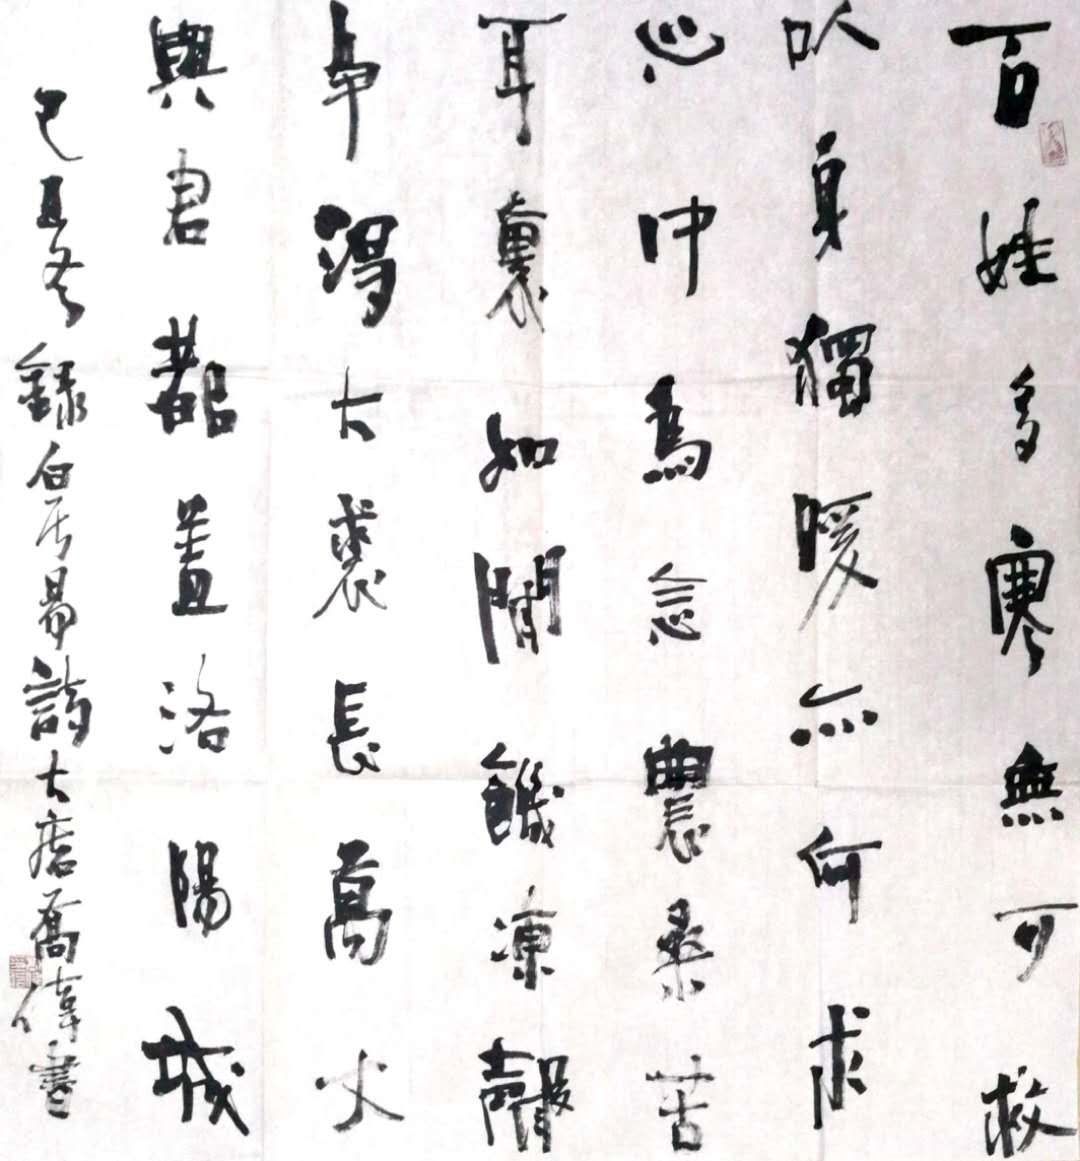 百姓多寒無可救
以身獨暖亦何求
心中為念農桑苦
耳裏如聞饑凍聲
爭得大裘長萬丈
與君都蓋洛陽城
己丑冬錄白居易詩大店喬偉書